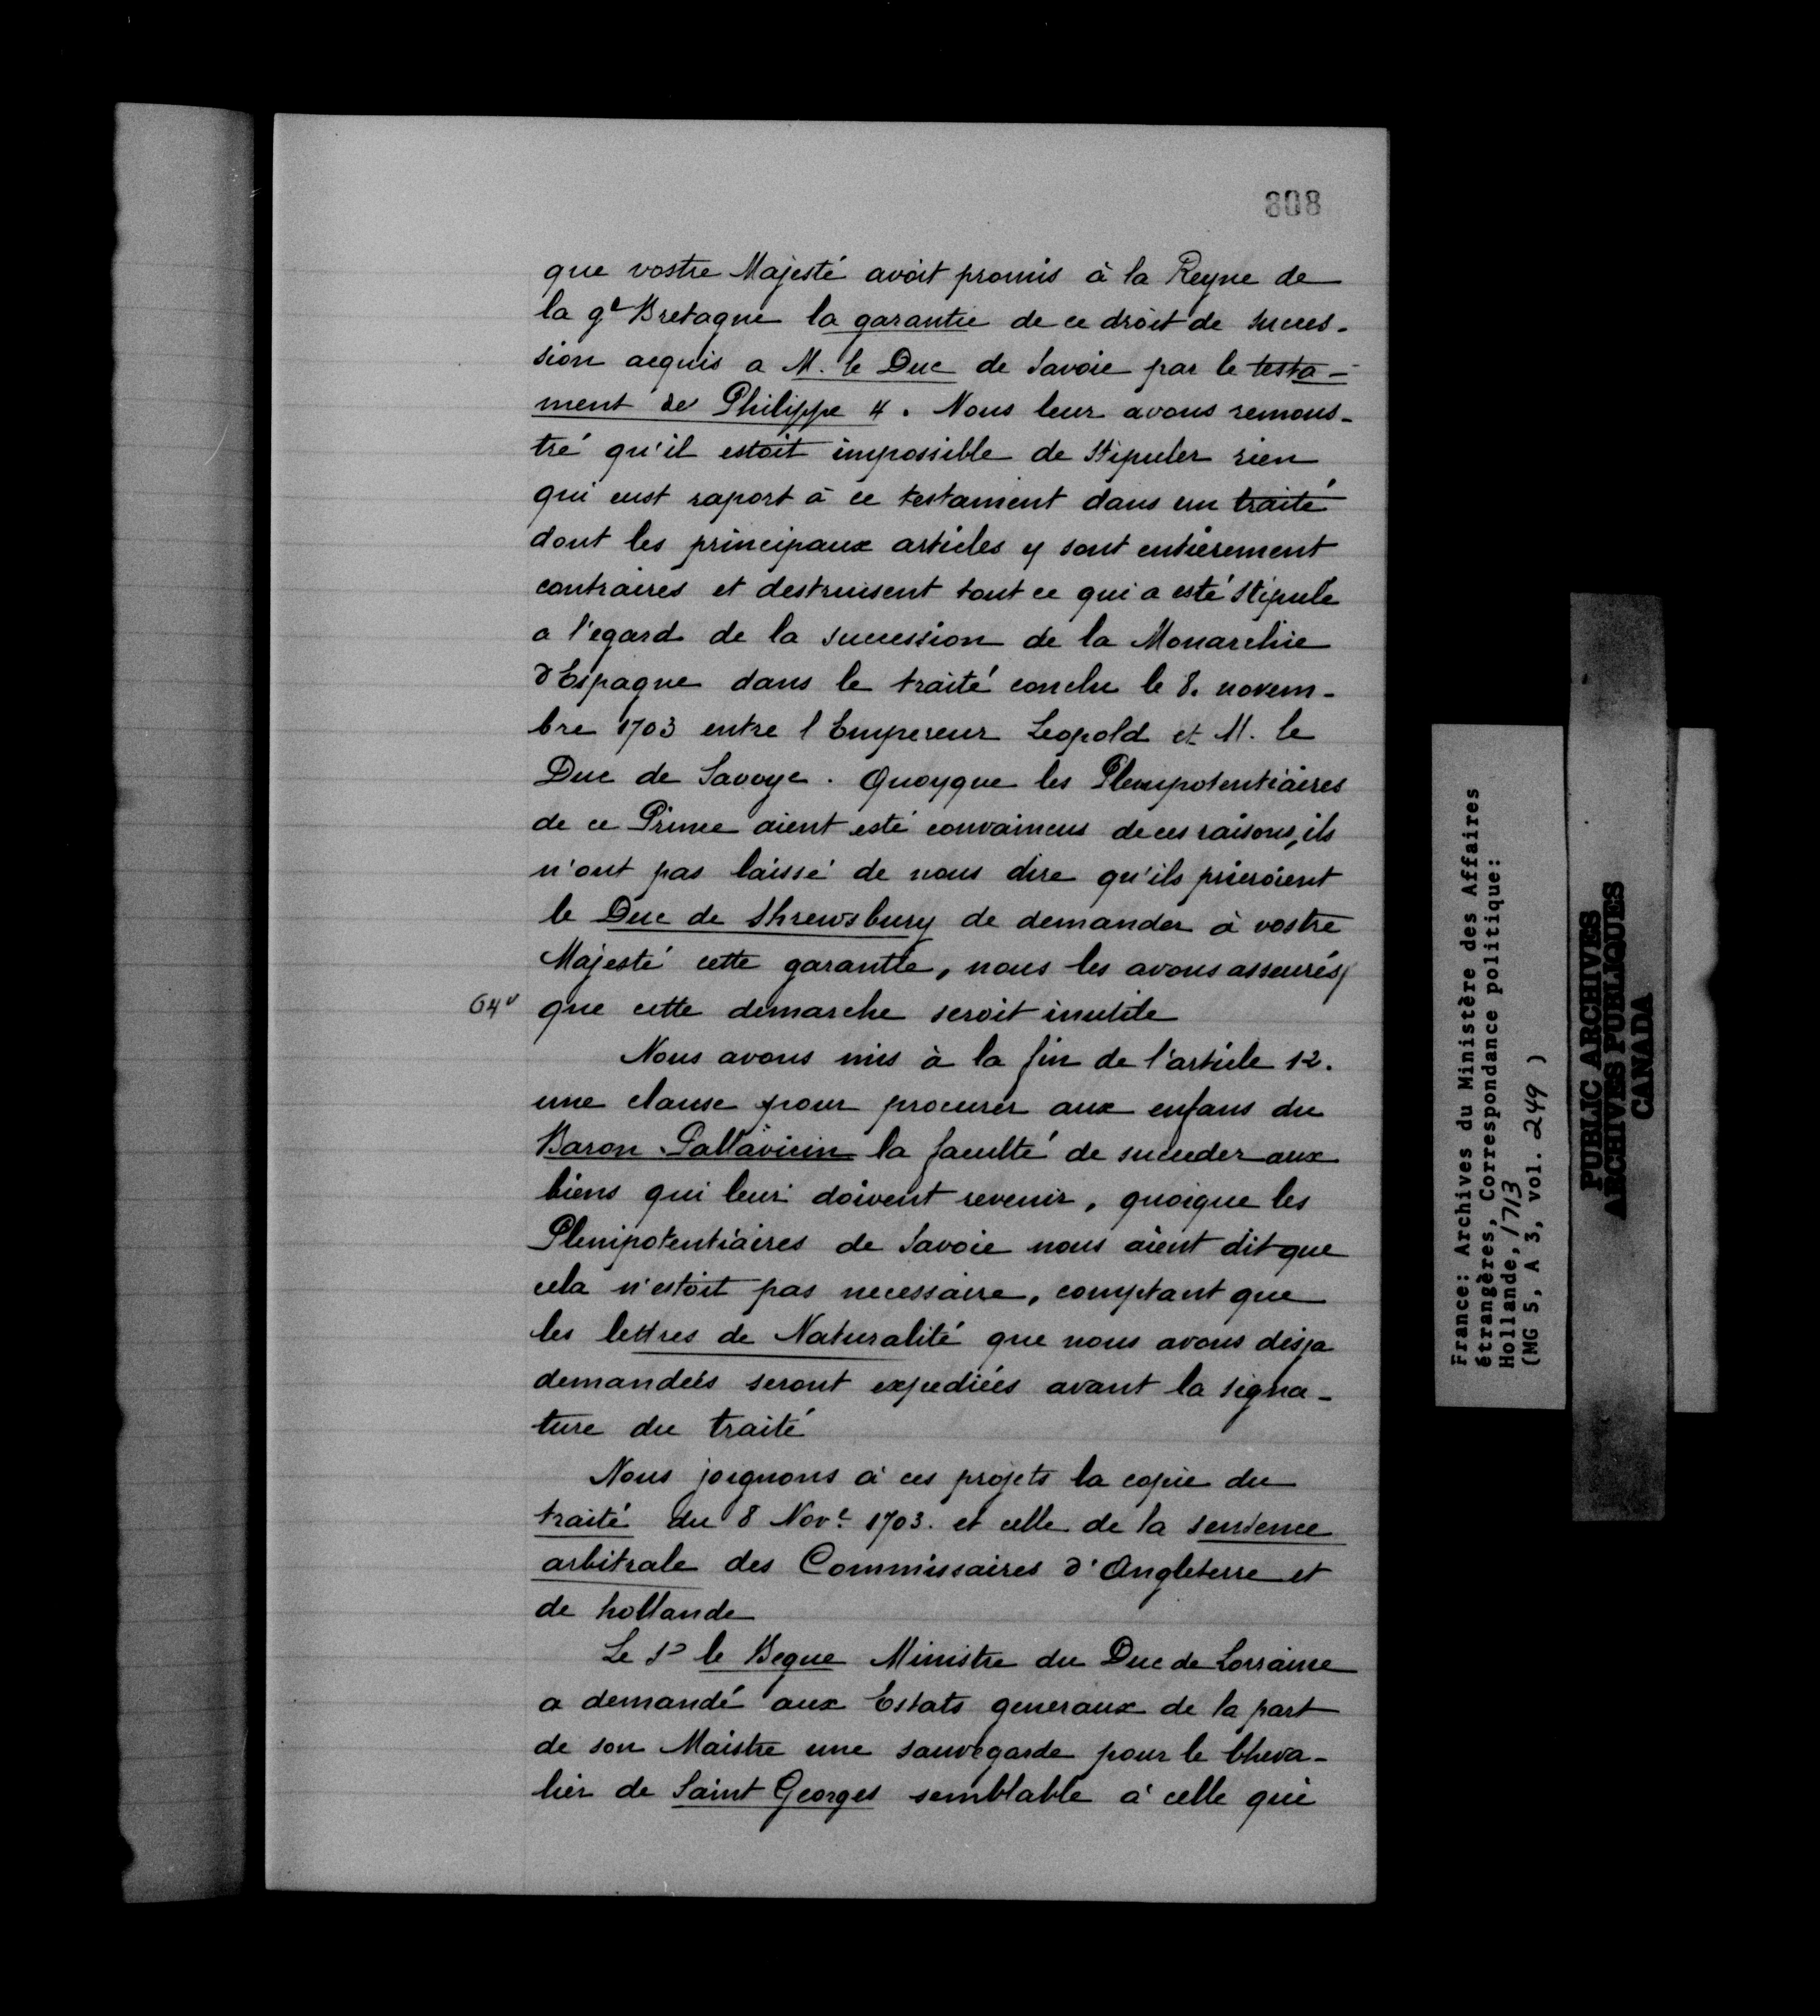 808
que vostre Majesté avoit promis à la Reyne de
la g.e Bretagne la garantie de ce droit de succes-
sion acquis a M. le Duc de Savoie par le testa-
ment de Philippe 4. Nous leur avons remons-
tré qu'il estoit impossible de stipuler rien
qui eust raport à ce testament dans un traité
dont les principaux articles y sont entièrement
contraires et destruisent tout ce qui a esté stipulé
a l'egard de la succession de la Monarchie
d'Espagne dans le traité conclu le 8. novem-
bre 1703 entre l'Empereur Leopold et M. le
Duc de Savoye. Quoyque les Plenipotentiaires
de ce Prince aient esté convaincus de ces raisons, ils
n'ont pas laissé de nous dire qu'ils prieroient
le Duc de Shrewsbury de demander à vostre
Majesté cette garantie, nous les avons asseurés/
64v que cette demarche seroit inutile
Nous avons mis à la fin de l'article 12.
une clause pour procurer aux enfans du
Baron Pallavicin la faculté de succeder aux
biens qui leur doivent revenir, quoique les
Plenipotentiaires de Savoie nous aient dit que
cela n'estoit pas necessaire, comptant que
les lettres de Naturalité que nous avons desja
demandées seront expediées avant la signa-
ture du traité
Nous joignons à ces projets la copie du
traité du 8 Nov.e 1703. et celle de la sentence
arbitrale des Commissaires d'Angleterre et
de hollande
Le Sr le Begue Ministre du Duc de Lorraine
a demandé aux Estats generaux de la part
de son Maistre une sauvegarde pour le Cheva-
lier de Saint Georges semblable à celle qui
France: Archives du Ministère des Affaires
étrangères, Correspondance politique:
Hollande, 1713
(MG 5, A 3, vol. 249 )
PUBLIC ARCHIVES
ARCHIVES PUBLIQUES
CANADA